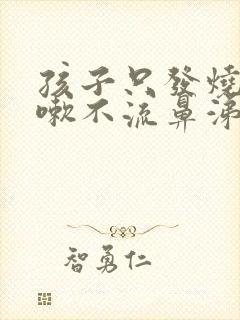 孩子只發燒
嗽不流鼻涕
智勇仁